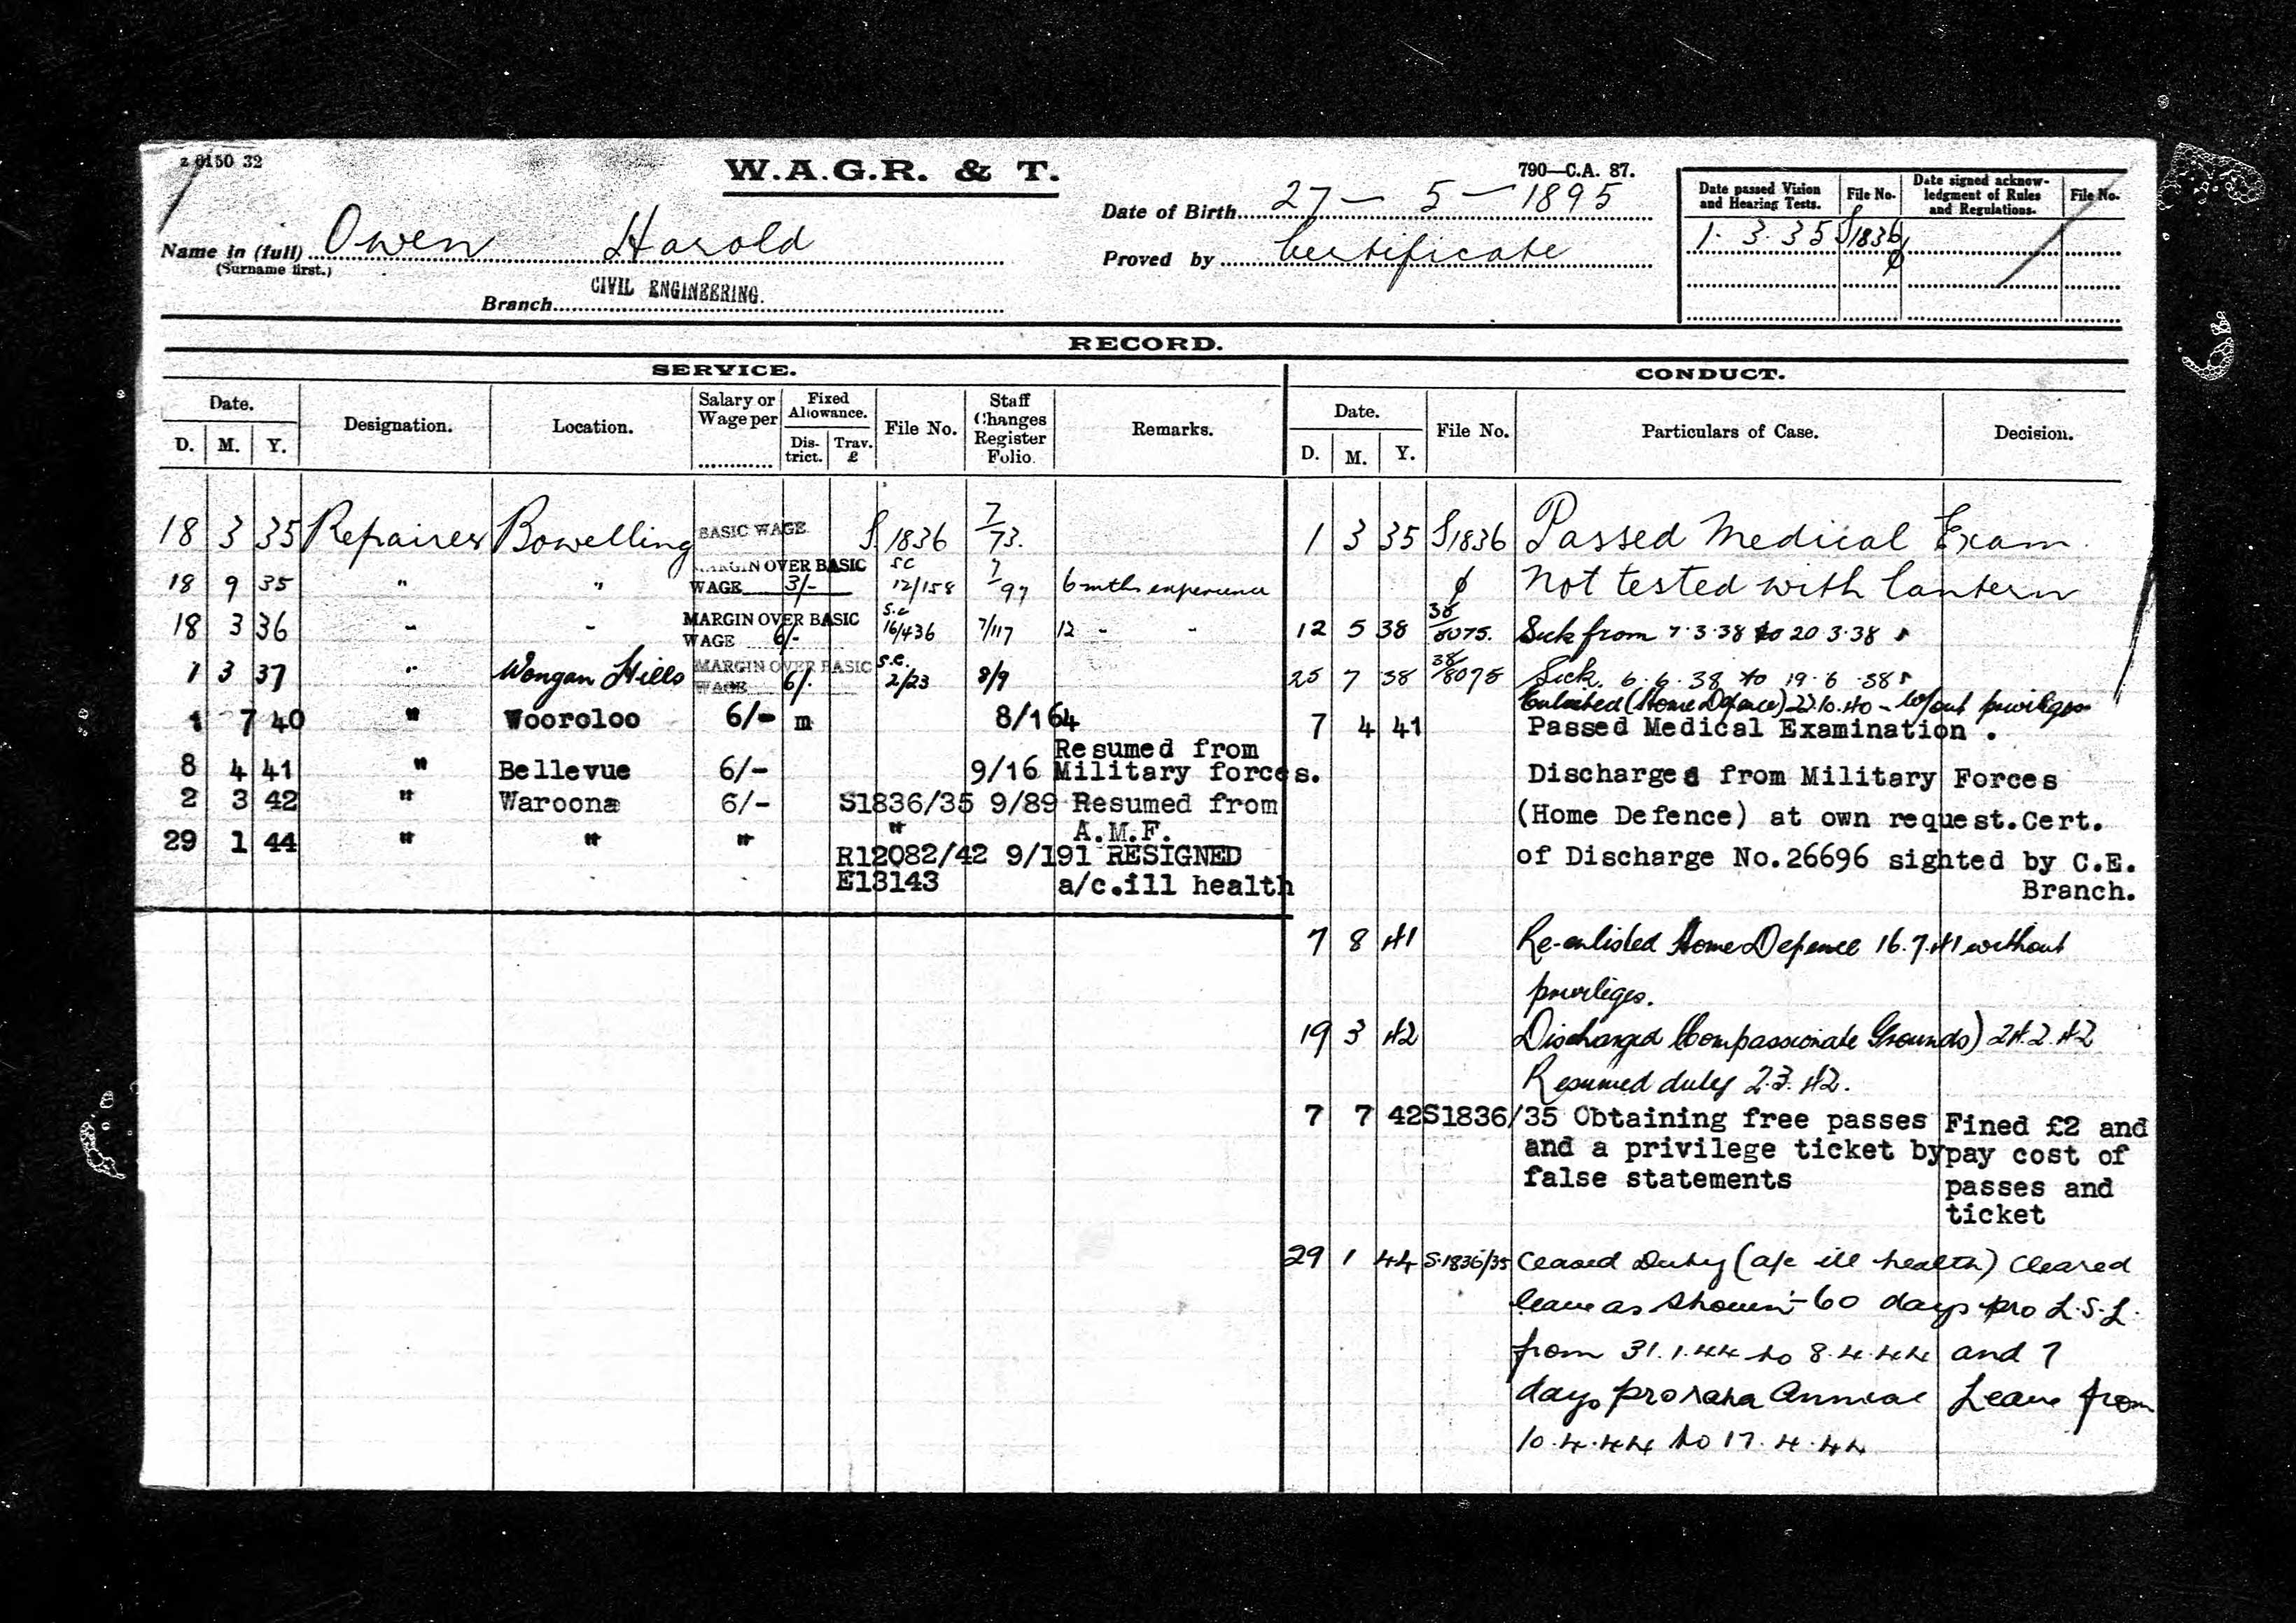 z 0150 32
W.A.G.R. & T.
790—C.A. 87.
Name in (full) Owen Harold
(Surname first.)
Branch CIVIL ENGINEERING.
Date of Birth 27 - 5 - 1895
Proved by Certificate
Date passed Vision and Hearing Tests. File No. Date signed acknow-ledgment of Rules and Regulations. File No.
1. 3. 35 S1836
RECORD.
SERVICE.
Date. Designation. Location. Salary or Wage per Fixed Allowance. File No. Staff Changes Register Folio. Remarks.
D. M. Y. Dis-trict. Trav. £
18 3 35 Repairer Bowelling BASIC WAGE S. 1836 7/73.
18 9 35 " " MARGIN OVER BASIC WAGE 3/- SC 12/158 7/97 6 mths experience
18 3 36 " " MARGIN OVER BASIC WAGE 6/- S.C 16/436 7/117 12 " "
1 3 37 " Wongan Hills MARGIN OVER BASIC WAGE 6/- S.C. 2/23 8/9
1 7 40 " Wooroloo 6/- m 8/164
8 4 41 " Bellevue 6/- 9/16 Resumed from Military forces.
2 3 42 " Waroona 6/- S1836/35 9/89 Resumed from A.M.F.
29 1 44 " " " " R12082/42 9/191 RESIGNED
E13143 a/c.ill health
CONDUCT.
Date. File No. Particulars of Case. Decision.
D. M. Y.
1 3 35 S1836 Passed Medical Exam.
Not tested with lantern
12 5 38 38/8075. Sick from 7.3.38 to 20 3.38
25 7 38 38/8075 Sick. 6.6.38 to 19.6.38
Enlisted (Home Defence) 22.10.40 - without privileges
7 4 41 Passed Medical Examination .
Discharged from Military Forces
(Home Defence) at own request.Cert.
of Discharge No.26696 sighted by C.E.
Branch.
7 8 41 Re-enlisted Home Defence 16.7.41 without
privileges.
19 3 42 Discharged (Compassionate Grounds) 24.2.42
Resumed duty 2.3.42.
7 7 42 S1836/35 Obtaining free passes Fined £2 and
and a privilege ticket by pay cost of
false statements passes and
ticket
29 1 44 S.1836/35 Ceased Duty (a/c ill health) Cleared
leave as shown:- 60 days pro L.S.L.
from 31.1.44 to 8.4.44 and 7
days pro rata Annual Leave from
10.4.44 to 17.4.44